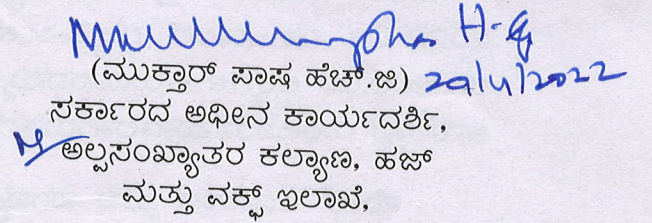 H-G
(ಮುಕ್ತಾರ್ ಪಾಷ ಹೆಚ್.ಜಿ) 29/4/2022
ಸರ್ಕಾರದ ಅಧೀನ ಕಾರ್ಯದರ್ಶಿ,
ಅಲ್ಪಸಂಖ್ಯಾತರ ಕಲ್ಯಾಣ, ಹಜ್
ಮತ್ತು ವಕ್ಫ್ ಇಲಾಖೆ,